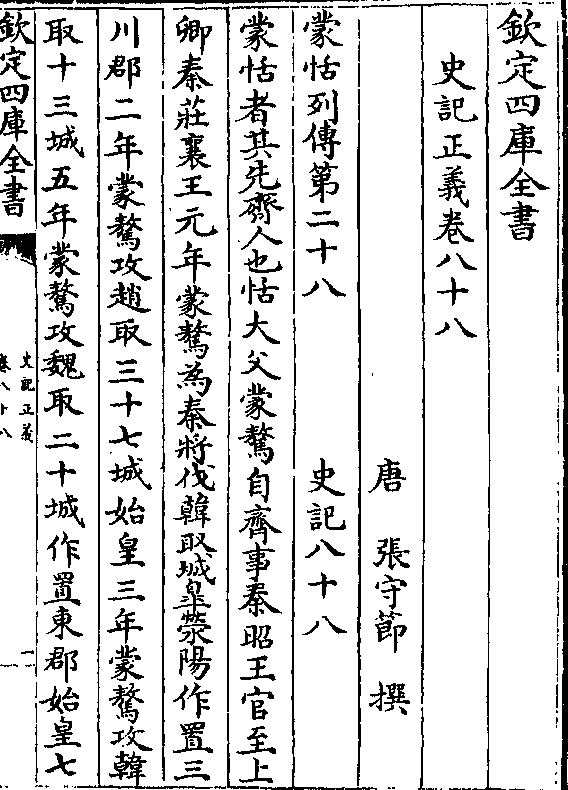 欽定四庫全書
史記正義卷八十八
唐 張守節 撰
蒙恬列傳第二十八 史記八十八
蒙恬者其先齊人也恬大父蒙驁自齊事秦昭王官至上
卿秦莊襄王元年蒙驁為秦將伐韓取城臯滎陽作置三
川郡二年蒙驁攻趙取三十七城始皇三年蒙驁攻韓
取十三城五年蒙驁攻魏取二十城作置東郡始皇七
欽定四庫全書
史記正義
卷八十八
一